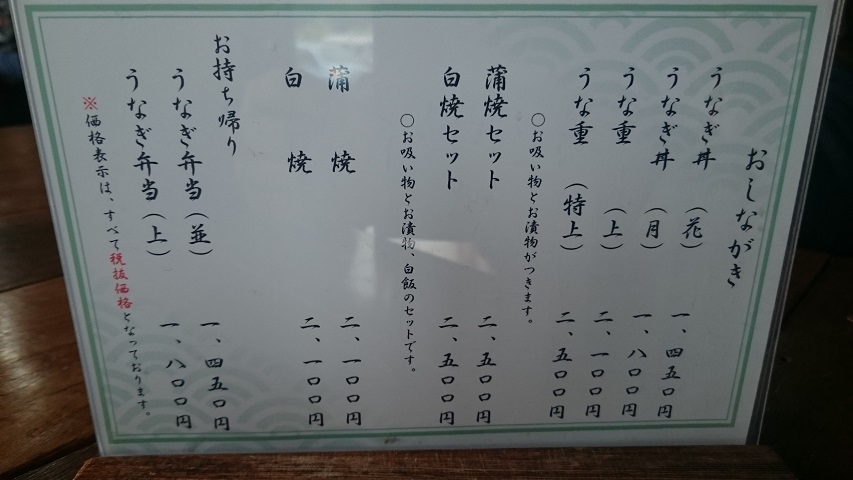 おしながき
うなぎ丼　（花）　一、四五〇円
うなぎ丼　（月）　一、八〇〇円
うな重　（上）　二、一〇〇円
うな重　（特上）　二、五〇〇円
○お吸い物とお漬物がつきます。
蒲焼セット　二、五〇〇円
白焼セット　二、五〇〇円
○お吸い物とお漬物、白飯のセットです。
蒲　焼　二、一〇〇円
白　焼　二、一〇〇円
お持ち帰り
うなぎ弁当（並）　一、四五〇円
うなぎ弁当（上）　一、八〇〇円
※価格表示は、すべて税抜価格となっております。